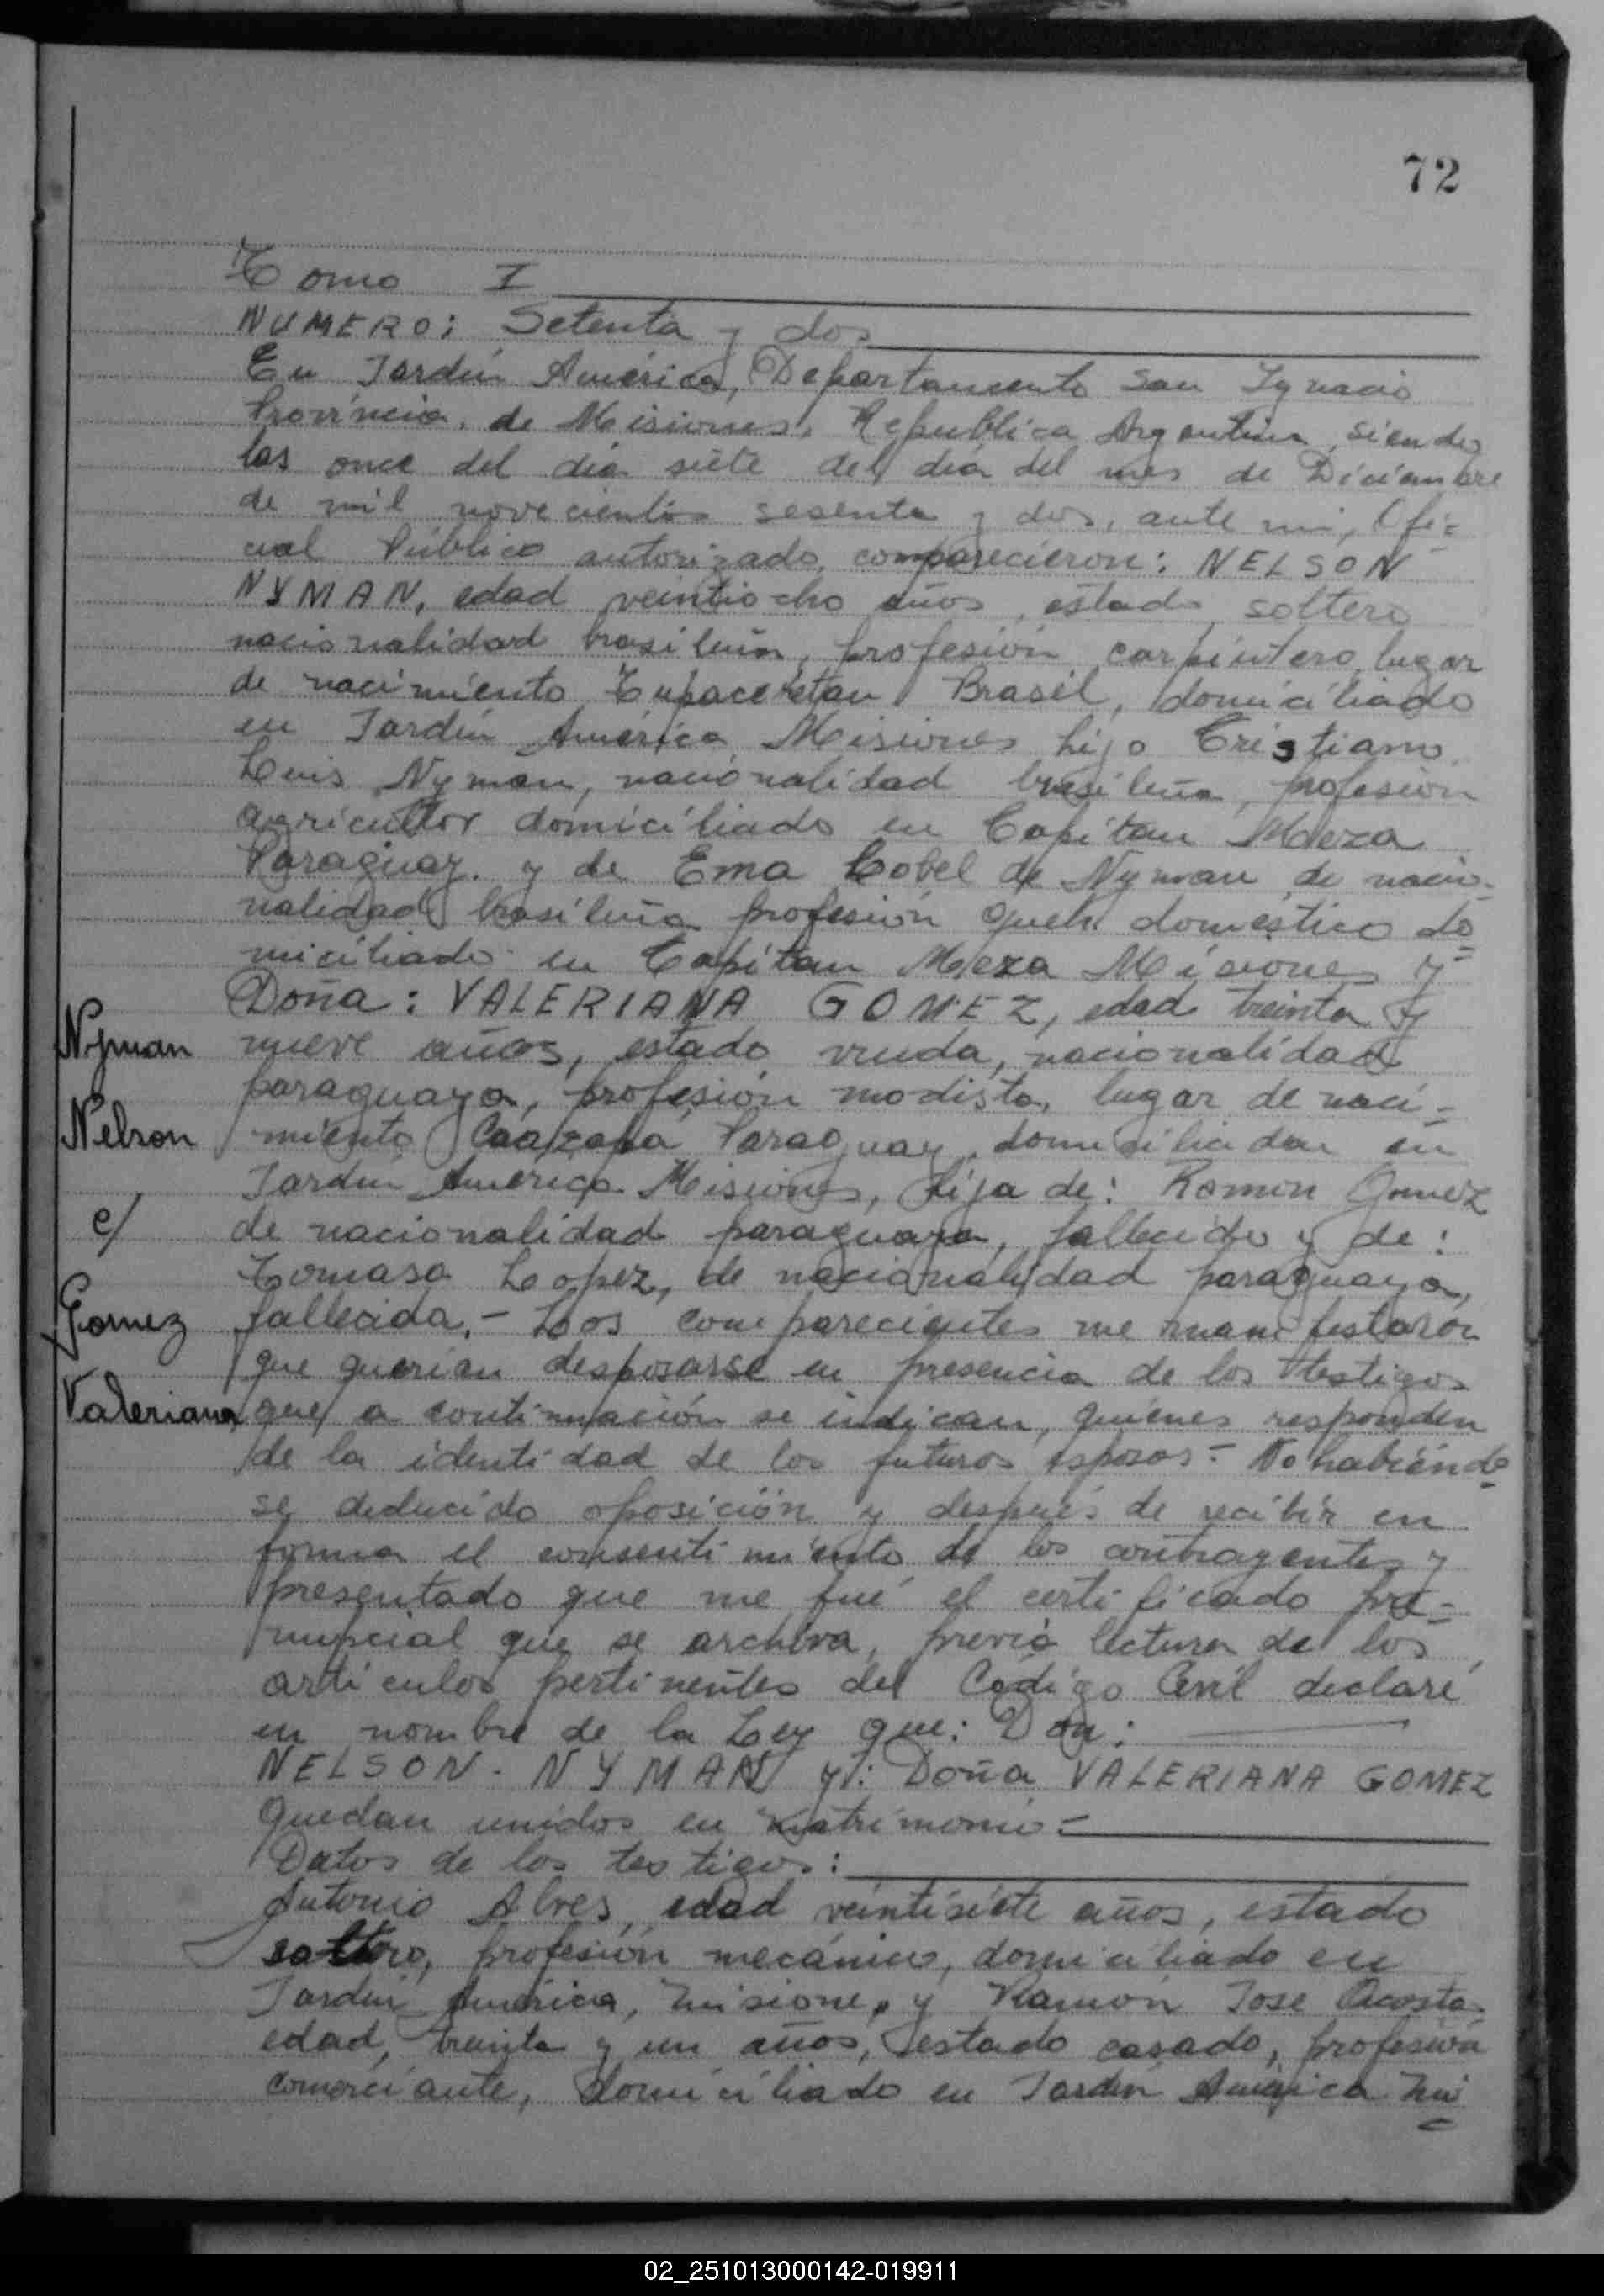 72
Tomo I
NUMERO: Setenta y dos
En Jardín América, Departamento San Ignacio
Provincia, de Misiones, Republica Argentina, siendo
las once del día siete del día del mes de Diciembre
de mil novecientos sesenta y dos, ante mi, Ofi=
cial Público autorizado, comparecieron: NELSON
NYMAN, edad veintiocho años, estado soltero
nacionalidad brasileña, profesión carpintero, lugar
de nacimiento, Tupaceretan Brasil, domiciliado
en Jardín América Misiones hijo Cristiano
Luis Nyman, nacionalidad brasileña, profesion
agricultor domiciliado en Capitan Meza
Paraguay. y de Ema Cobel de Nyman de nacio-
nalidad brasileña profesión queh. doméstico do=
miciliado en Capitan Meza Misiones y
Doña: VALERIANA GOMEZ, edad treinta y
Nyman
nueve años, estado viuda, nacionalidad
paraguaya, profesión modista, lugar de naci-
Nelson
miento Caazapá Paraguay, domiciliada en
Jardín América Misiones, hija de: Ramon Gomez
c/
de nacionalidad paraguaya, fallecido y de:
Tomasa Lopez, de nacionalidad paraguaya,
Gomez
fallecida.- Los comparecientes me manifestaron
que querian desposarse en presencia de los testigos
Valeriana
que a continuación se indican, quienes responden
de la identidad de los futuros esposos - No habiendo
se deducido oposición y después de recibir en
forma el consentimiento de los contrayentes y
presentado que me fué el certificado pre-
nupcial que se archiva, previa lectura de los
articulos pertinentes del Código Civil declaré
en nombre de la Ley que: Don:
NELSON - NYMAN y: Doña VALERIANA GOMEZ
quedan unidos en matrimonio-
Datos de los testigos:
Antonio Alves, edad veintisiete años, estado
soltero, profesión mecánico, domiciliado en
Jardín América, Misiones, y Ramón Jose Acosta
edad, treinta y un años, estado casado, profesión
comerciante, domiciliado en Jardín América Mi
02_251013000142-019911